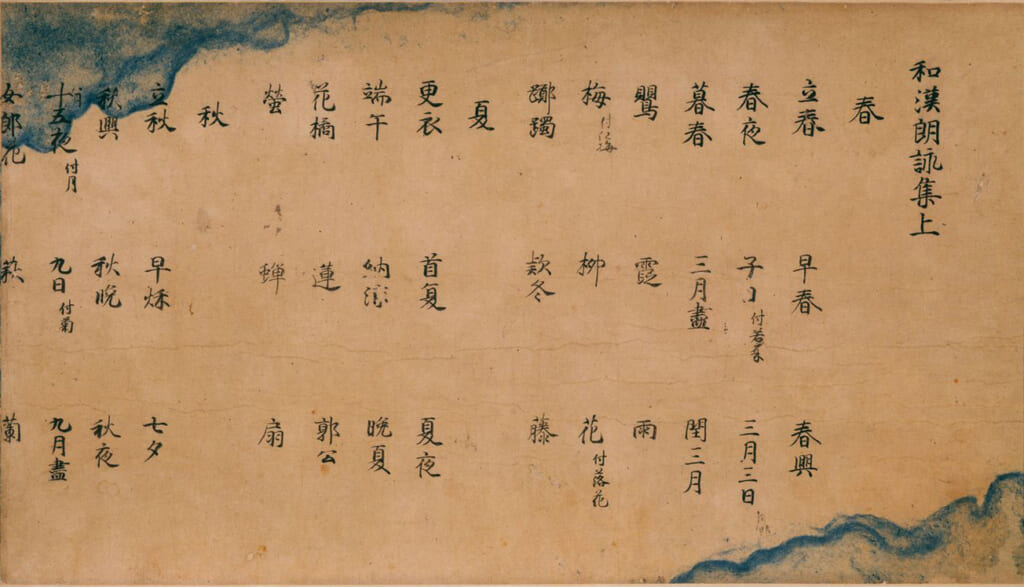 和漢朗詠集上
春
立春 早春 春興
春夜 子日付若菜 三月三日
暮春 三月盡 閏三月
鸎 霞 雨
梅付紅梅 柳 花付落花
躑躅 款冬 藤
夏
更衣 首夏 夏夜
端午 納涼 晩夏
花橘 蓮 郭公
螢 蟬 扇
秋
立秋 早秋 七夕
秋興 秋晩 秋夜
十五夜付月 九日付菊 九月盡
女郎花 蘭